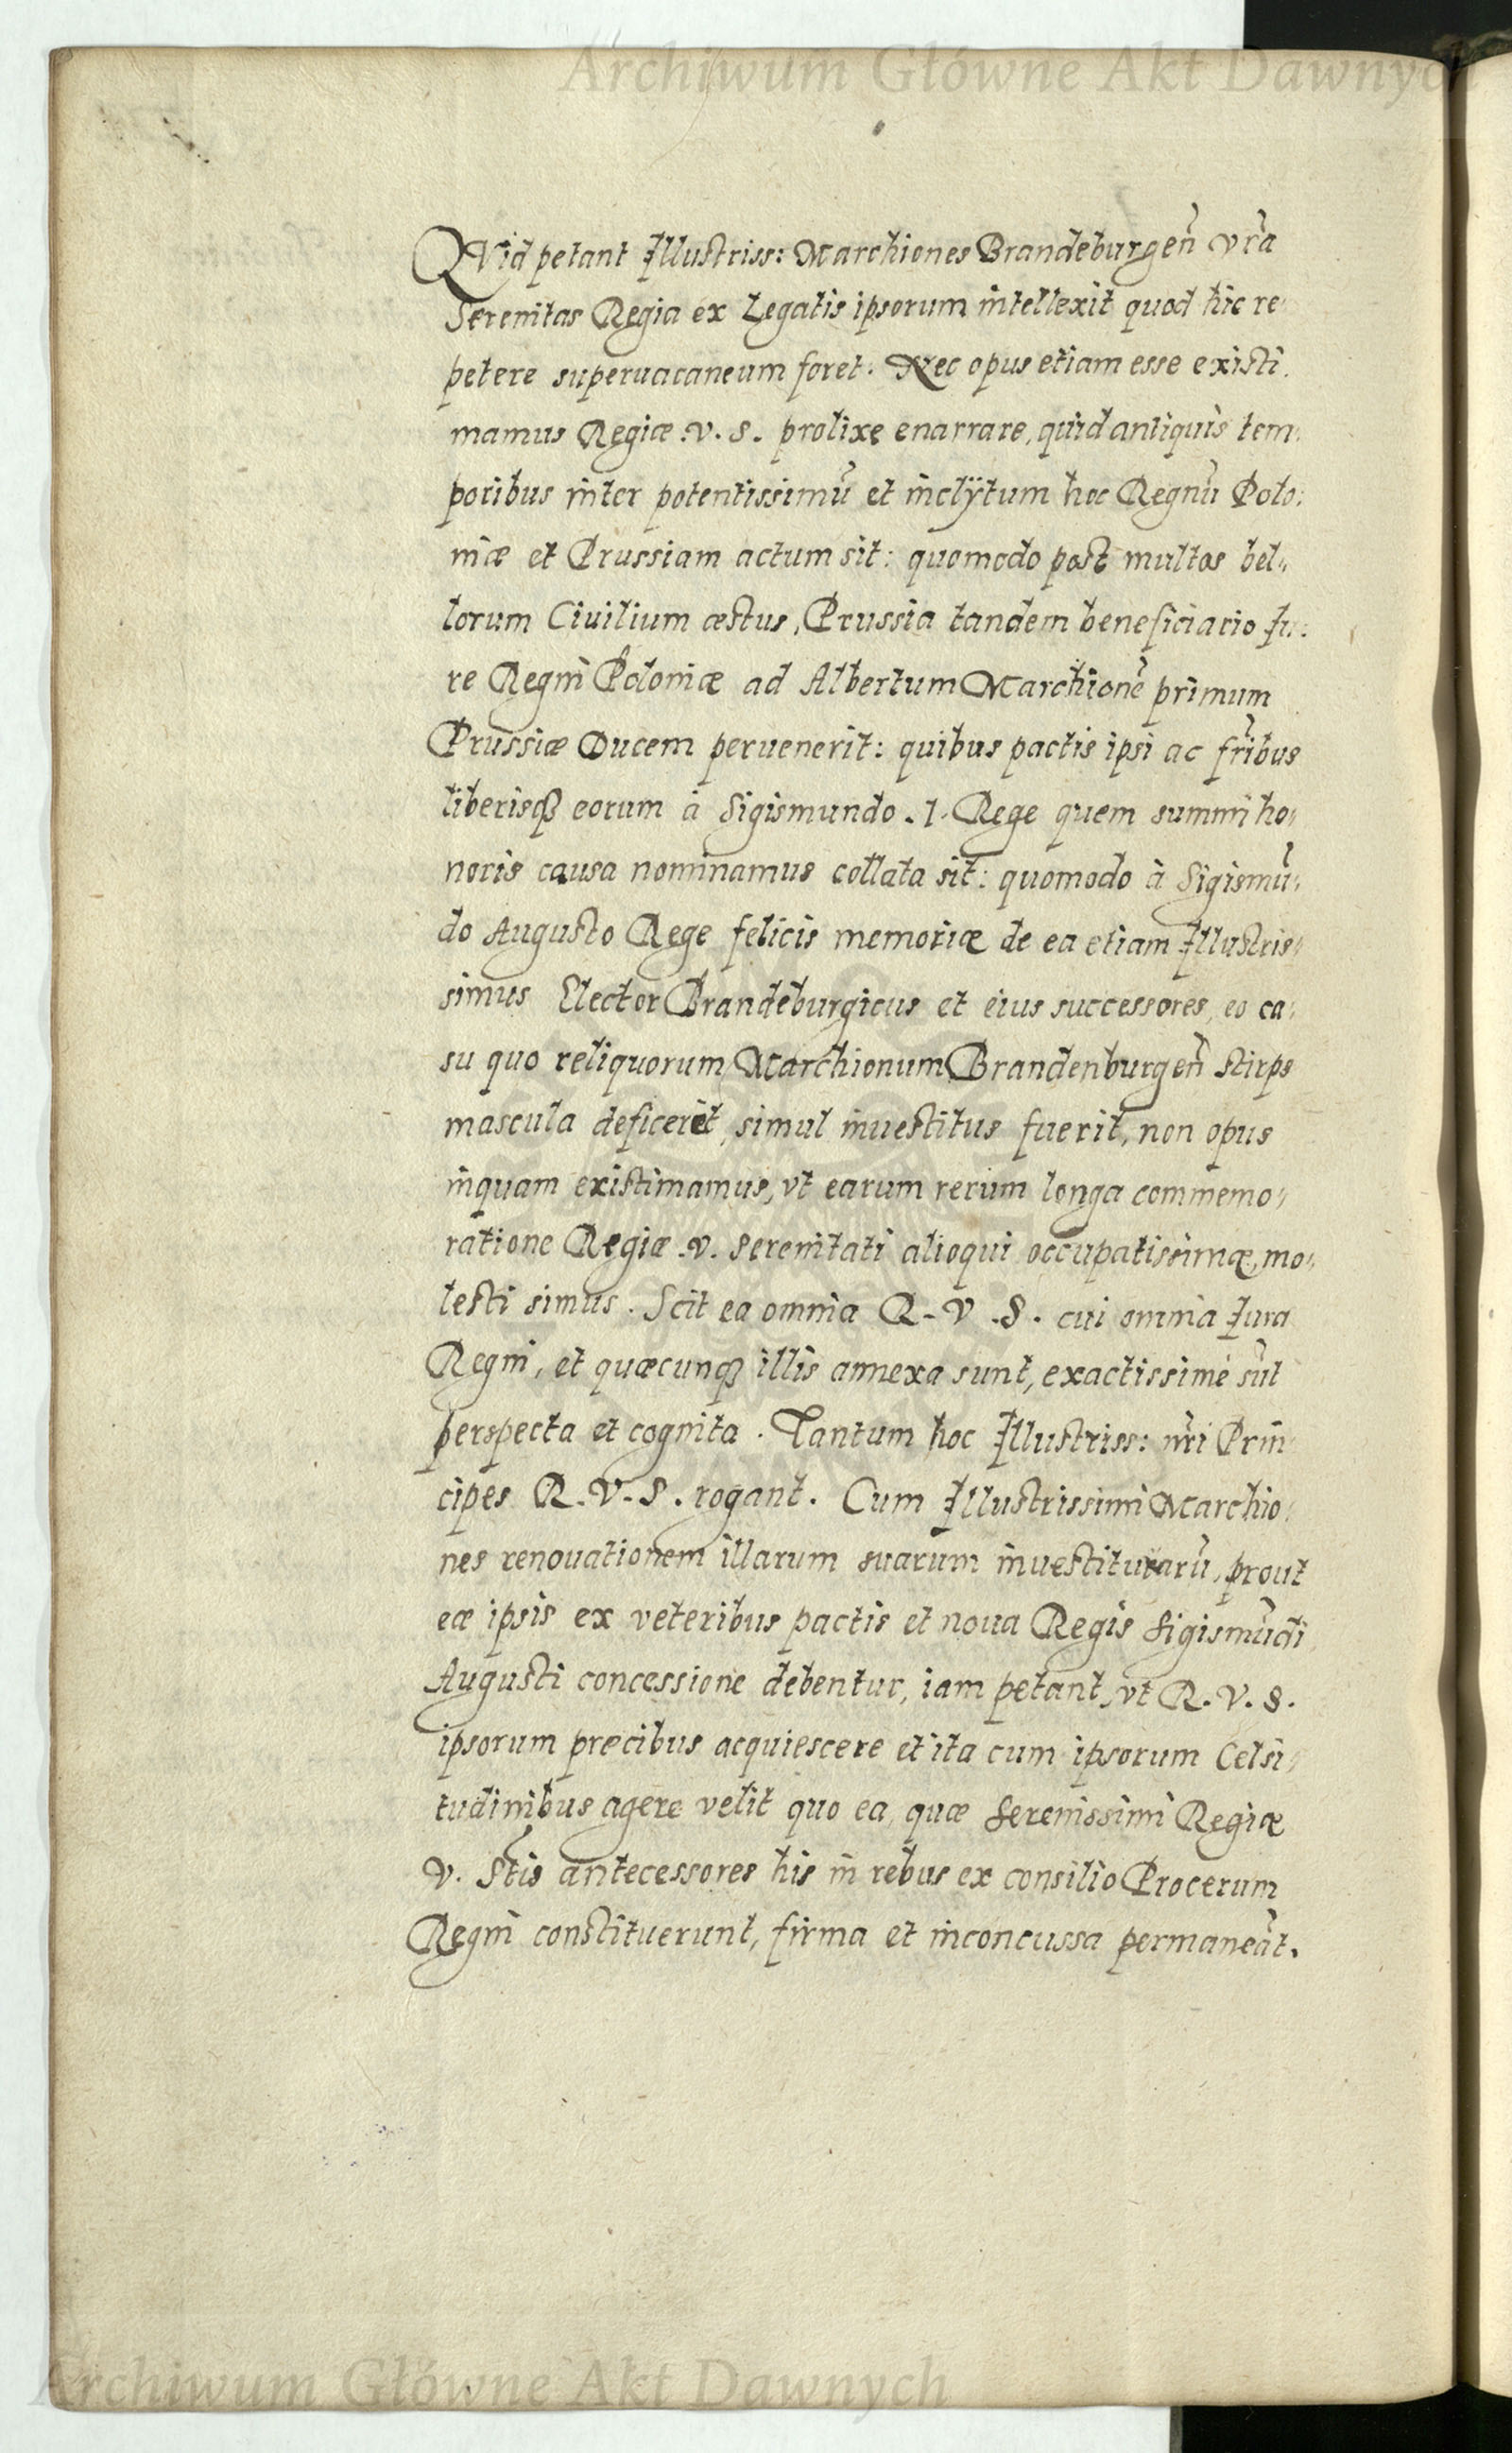 Archiwum Główne Akt Dawnych
QVid petant Illustriss: Marchiones Brandeburgeñ vr̃a
Serenitas Regia ex Legatis ipsorum intellexit quod hic re-
petere superuacaneum foret. Nec opus etiam esse existi-
mamus Regiæ .v. S. prolixe enarrare, quid antiquis tem-
poribus inter potentissimũ et inclÿtum hoc Regnũ Polo-
niæ et Prussiam actum sit: quomodo post multos bel-
lorum Ciuilium æstus, Prussia tandem beneficiario Iu-
re Regni Poloniæ ad Albertum Marchionẽ primum
Prussiæ Ducem peruenerit: quibus pactis ipsi ac fr̃ibus
liberisq́ȝ eorum à Sigismundo .1. Rege quem summi ho-
noris causa nominamus collata sit: quomodo à Sigismũ-
do Augusto Rege felicis memoriæ de ea etiam Illustris-
simus Elector Brandeburgicus et eius successores, eo ca-
su quo reliquorum Marchionum Brandenburgeñ stirps
mascula deficeret, simul inuestitus fuerit, non opus
inquam existimamus, vt earum rerum longa commemo-
ratione Regiæ .v. Serenitati alioqui occupatissimæ, mo-
lesti simus. Scit ea omnia R. V. S. cui omnia Iura
Regni, et quæcunqȝ illis annexa sunt, exactissimè sũt
perspecta et cognita. Tantum hoc Illustriss: nr̃i Prin-
cipes R. V. S. rogant. Cum Illustrissimi Marchio-
nes renouationem illarum suarum inuestiturarũ, prout
eæ ipsis ex veteribus pactis et noua Regis Sigismũdi
Augusti concessione debentur, iam petant, vt R. V. S.
ipsorum precibus acquiescere et ita cum ipsorum Celsi-
tudinibus agere velit quo ea, quæ Serenissimi Regiæ
V. Stĩs antecessores his in rebus ex consilio Procerum
Regni constituerunt, firma et inconcussa permaneãt.
Archiwum Główne Akt Dawnych